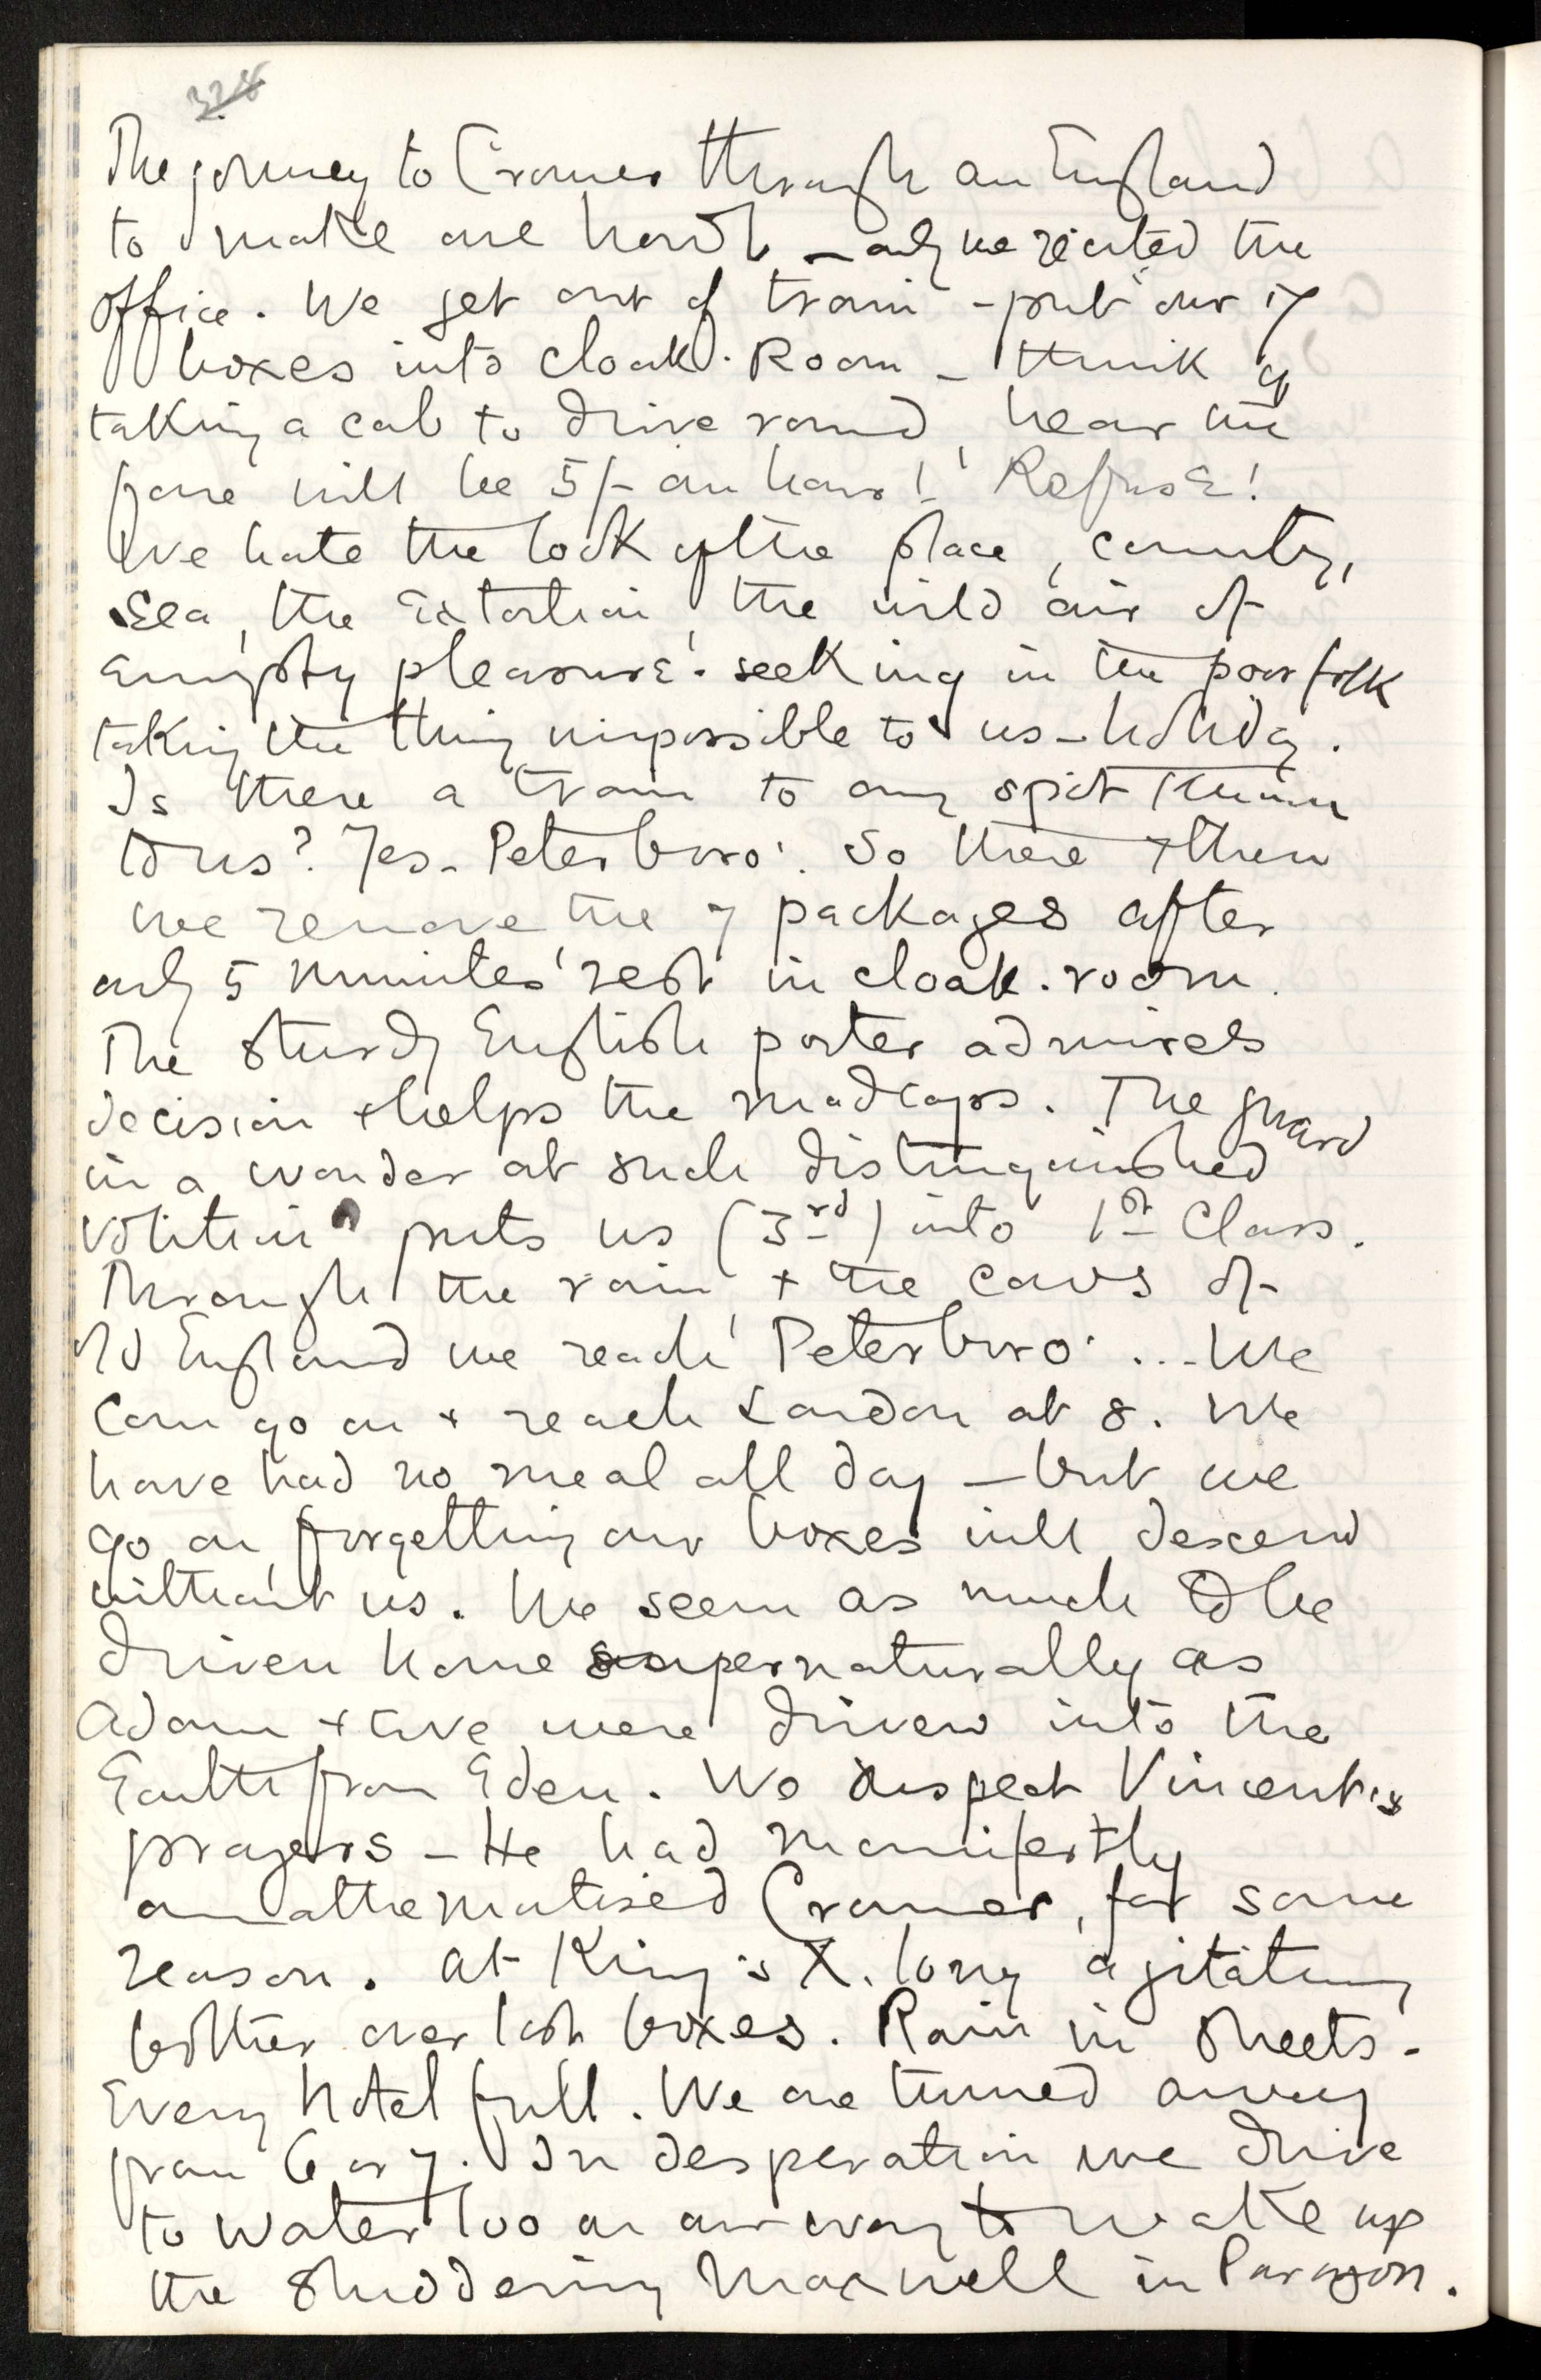 328
The journey to Cromer through an England
to make one howl – only we resisted the
office. We get out of train – put our 7
boxes into Cloak-Room – think of
taking a cab to drive round, hear the
fare will be 5/- an hour! Refuse!
We hate the look of the place, country,
sea, the extortion, the wild air of
empty pleasure-seeking in the poor folk
taking the thing impossible to us – holiday.
Is there a train to any spot known
to us? Yes – Peterboro'. So there & then
we remove the 7 packages after
only 5 minutes' rest in cloak-room.
The sturdy English porter admires
decision & helps the madcaps. The guard
in a wonder at such distinguished
volition puts us (3rd) into 1st Class.
Through the rain & the cows of
old England we reach Peterboro' ... We
can go on & reach London at 8. We
have had no meal all day – but we
go on, forgetting our boxes will descend
without us. We seem as much to be
driven home supernaturally as
Adam & Eve were driven into the
Earth from Eden. We suspect Vincent's
prayers – He had manifestly
anathematised Cromer, for some
reason. At King's X. long agitating
bother over lost boxes. Rain in sheets –
Every hotel full. We are turned away
from 6 or 7. In desperation we drive
to Waterloo on our way to wake up
the shuddering Maxwell in Paragon.